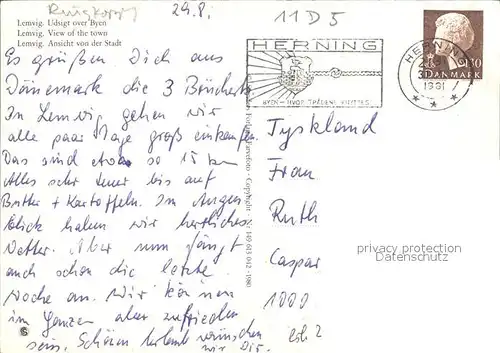 Ringkøpp 29.8. 11 D 5
Lemvig. Udsigt over Byen
Lemvig. View of the town
Lemvig. Ansicht von der Stadt
HERNING
BYEN - HVOR TRÅDENE KNYTTES
HERNING
1981
130
DANMARK
Es grüßen Dich aus
Dänemark die 3
In Lemvig gehen wir
alle paar Tage groß einkaufen.
Das sind etwa so 15 km
Alles sehr teuer bis auf
Butter + Kartoffeln. Im Augen
blick haben wir herrliches
Wetter. Aber nun fängt
auch schon die letzte
Woche an. Wir können
im Ganzen aber zufrieden
sein. Schönen Urlaub wünschen
wir Dir.
Tyskland
Frau
Ruth
Caspar
1000
privacy protection
Datenschutz